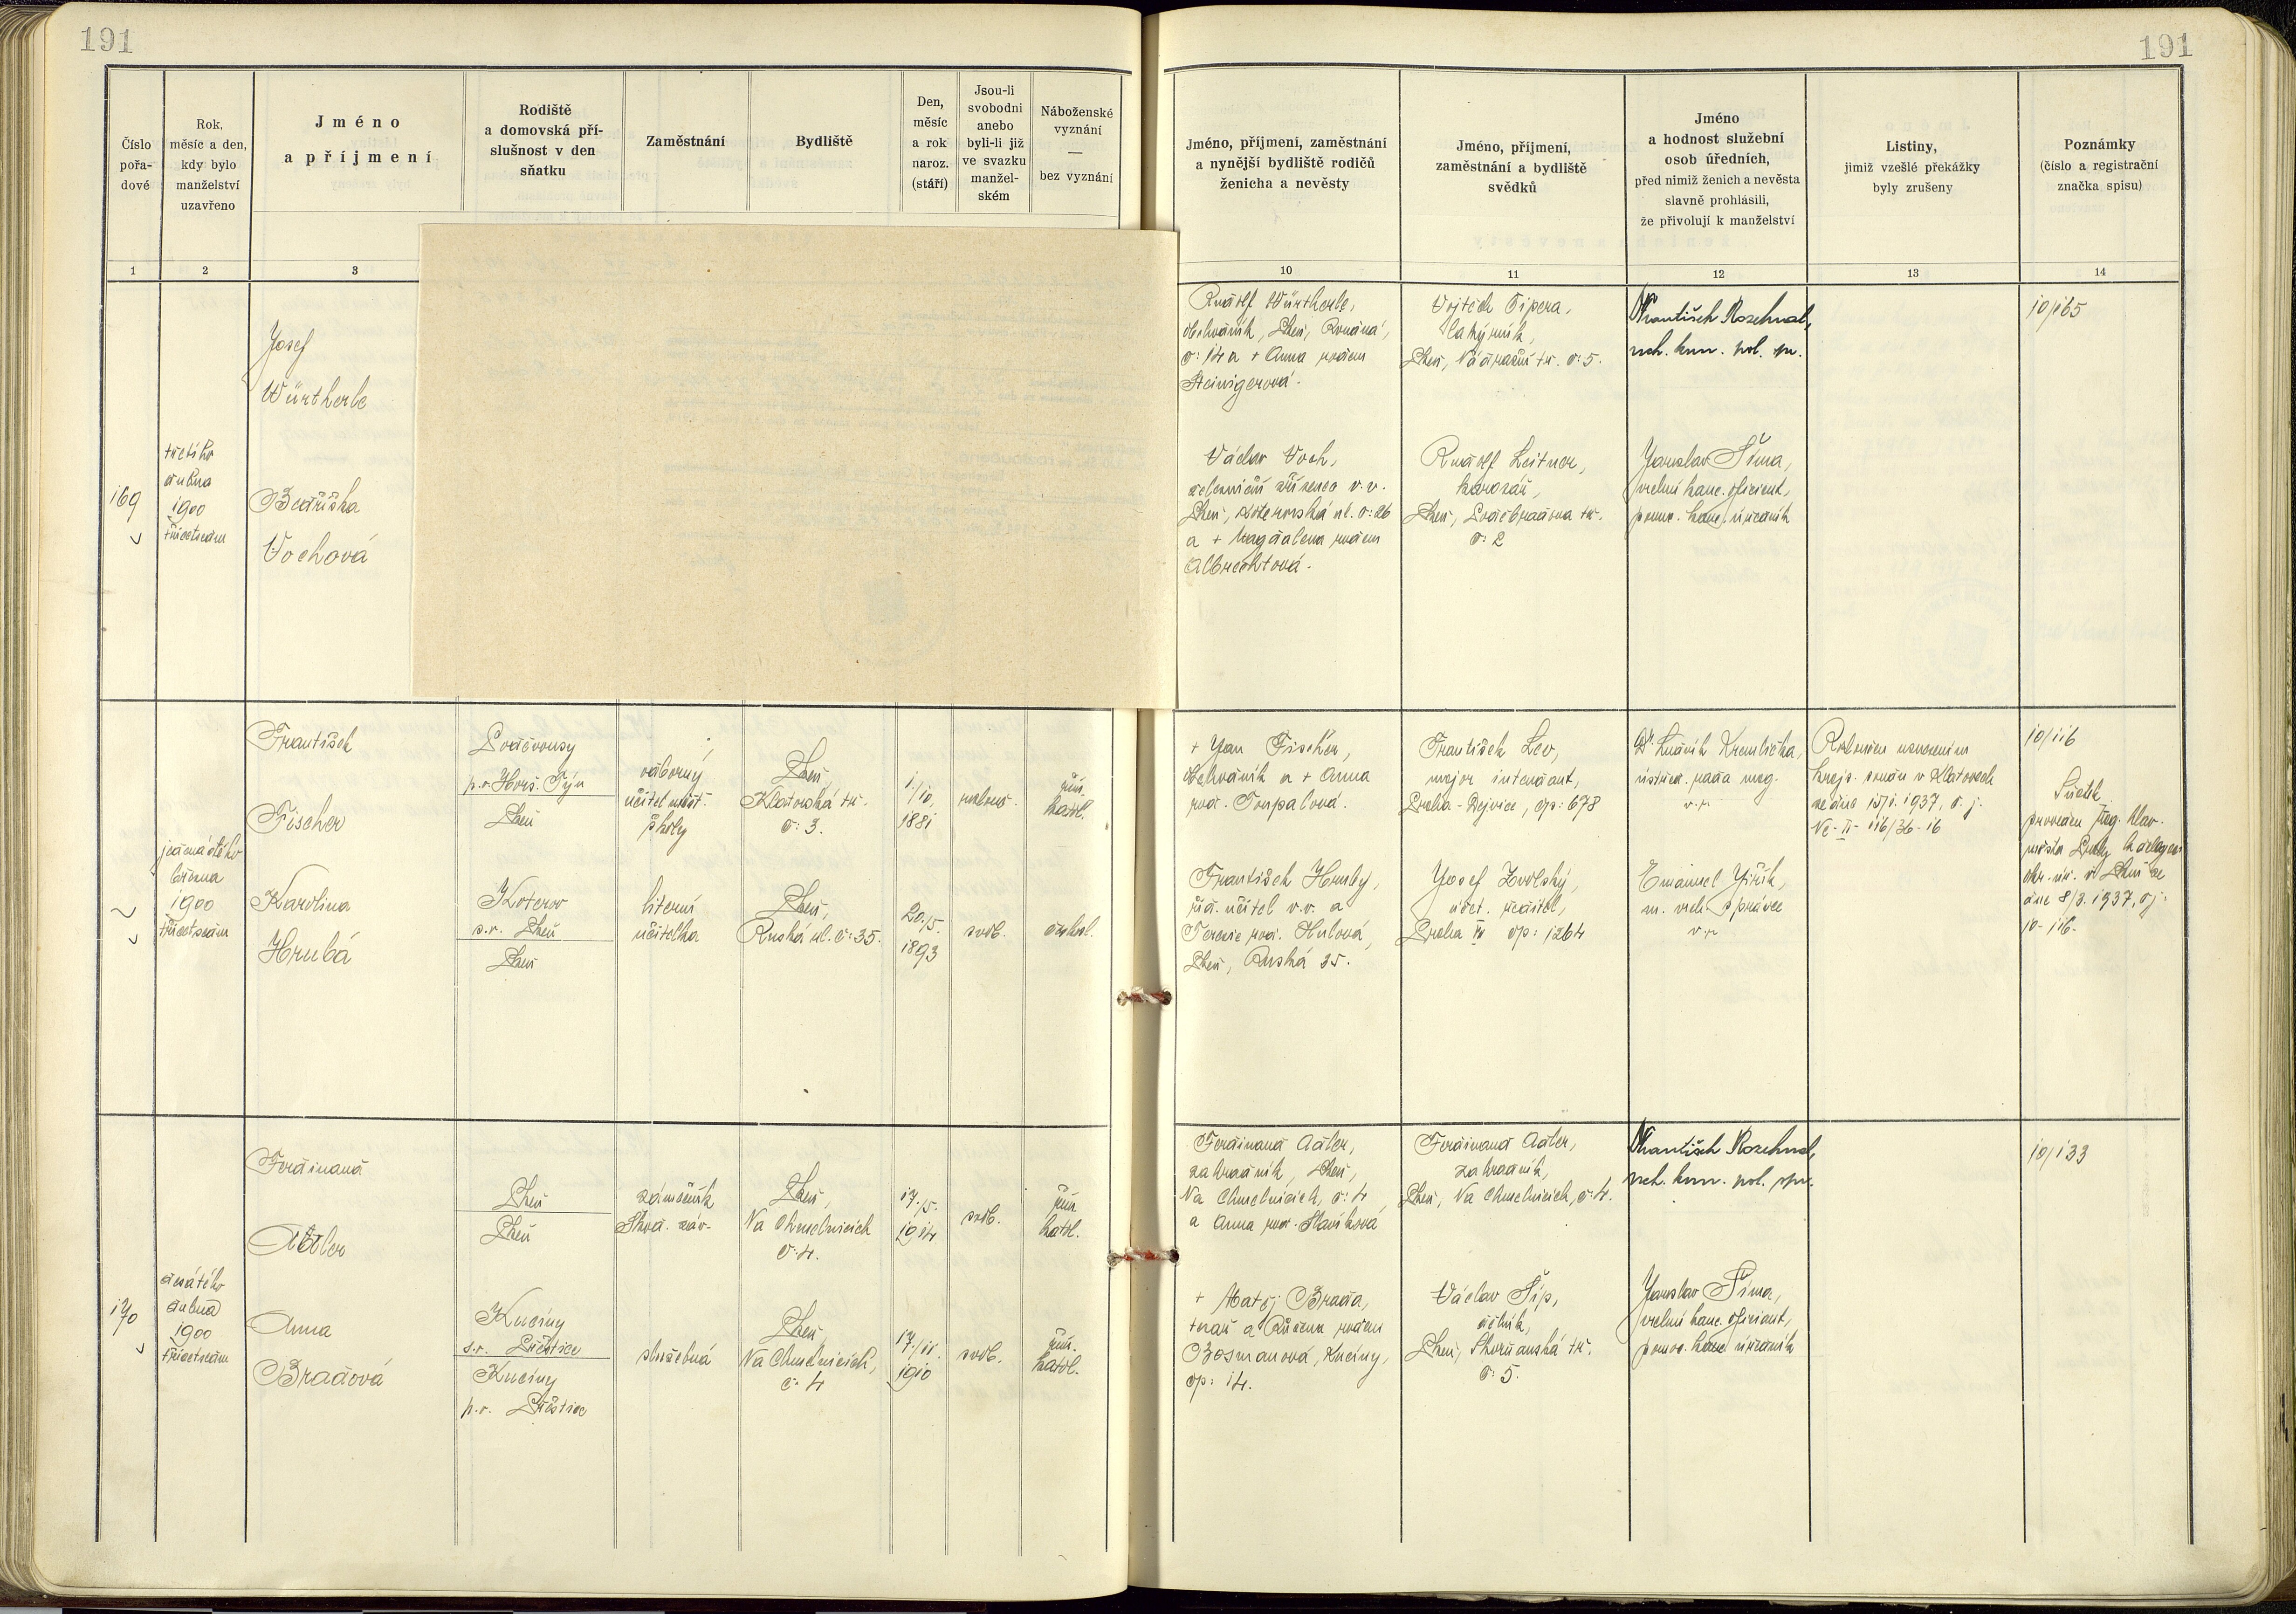 191
191
Číslo
pořa-
dové
Rok,
měsíc a den,
kdy bylo
manželství
uzavřeno
Jméno
a příjmení
Rodiště
a domovská pří-
slušnost v den
sňatku
Zaměstnání
Bydliště
Den,
měsíc
a rok
naroz.
(stáří)
Jsou-li
svobodni
anebo
byli-li již
ve svazku
manžel-
ském
Náboženské
vyznání
—
bez vyznání
Jméno, příjmení, zaměstnání
a nynější bydliště rodičů
ženicha a nevěsty
Jméno, příjmení,
zaměstnání a bydliště
svědků
Jméno
a hodnost služební
osob úředních,
před nimiž ženich a nevěsta
slavně prohlásili,
že přivolují k manželství
Listiny,
jimiž vzešlé překážky
byly zrušeny
Poznámky
(číslo a registrační
značka spisu)
1
2
3
10
11
12
13
14
169
třetího
dubna
1900
třicetsedm
Josef
Würtherle
Bedřiška
Vochová
Rudolf Würtherle,
obchodník, Plzeň,
č: 14 a + Anna rodem
Steinigerová.
Václav Voch,
železniční zřízenec v. v.
Plzeň, ul. č: 26
a + Magdalena rodem
Albrechtová.
Vojtěch Šipera,
latýrník,
Plzeň, Nádražní tř. č: 5.
Rudolf Leitner,
kovář,
Plzeň, Poděbradova tř.
č: 2
František Rozehnal,
vrch. kom. pol. spr.
Jaroslav Šíma,
vrchní kanc. oficiant,
pomoc. kanc. úředník
10/165
jedenáctého
března
1900
třicetsedm
František
Fischer
Karolina
Hrubá
Poděvousy
p. o. Horš. Týn
Plzeň
Koterov
s. o. Plzeň
Plzeň
odborný
učitel měšť.
školy
literní
učitelka
Plzeň,
Klatovská tř.
č: 3.
Plzeň,
Ruská ul. č: 35.
1./10.
1881
20./5.
1893
rozlouč.
svob.
řím.
katol.
českosl.
+ Jan Fischer,
obchodník a + Anna
roz. Toupalová.
František Hrubý,
říd. učitel v. v. a
Terezie roz. Hulová,
Plzeň, Ruská 35.
František Lev,
major intendant,
Praha - Dejvice, čp: 678
Josef Zvolský,
účet. ředitel,
Praha IV čp: 1264
Dr. Ludvík Kremlička,
ústřed. rada mag.
v. r.
Emanuel Jiřík,
m. vrch. správce
v. r.
Rozlouč. usnesením
krajs. soudu v Klatovech
ze dne 15/1. 1937, č. j.
Nc - II - 116/36 - 16
10/116
Sňatek
proveden Mag. hlav.
města Prahy k
okr. úř. v Plzni ze
dne 8/3. 1937, čj.
10 - 116.
170
desátého
dubna
1900
třicetsedm
Ferdinand
Adler
Anna
Bradová
Plzeň
Plzeň
Kucíny
s. o. Přeštice
Kucíny
p. o. Přeštice
zámečník
Škod. záv.
služebná
Plzeň,
Na Chmelnicích
č: 4.
Plzeň,
Na Chmelnicích,
č: 4
17./5.
1914
17./11.
1910
svob.
svob.
řím.
katol.
řím.
katol.
Ferdinand Adler,
zahradník, Plzeň,
Na Chmelnicích, č: 4
a Anna roz. Slavíková
+ Matěj Brada,
tesař a Růžena rodem
Bosmanová, Kucíny,
čp: 14.
Ferdinand Adler,
zahradník,
Plzeň, Na Chmelnicích, č: 4.
Václav Šíp,
dělník,
Plzeň, Skvrňanská tř.
č: 5.
František Rozehnal,
vrch. kom. pol. spr.
Jaroslav Šíma,
vrchní kanc. oficiant,
pomoc. kanc. úředník
10/133